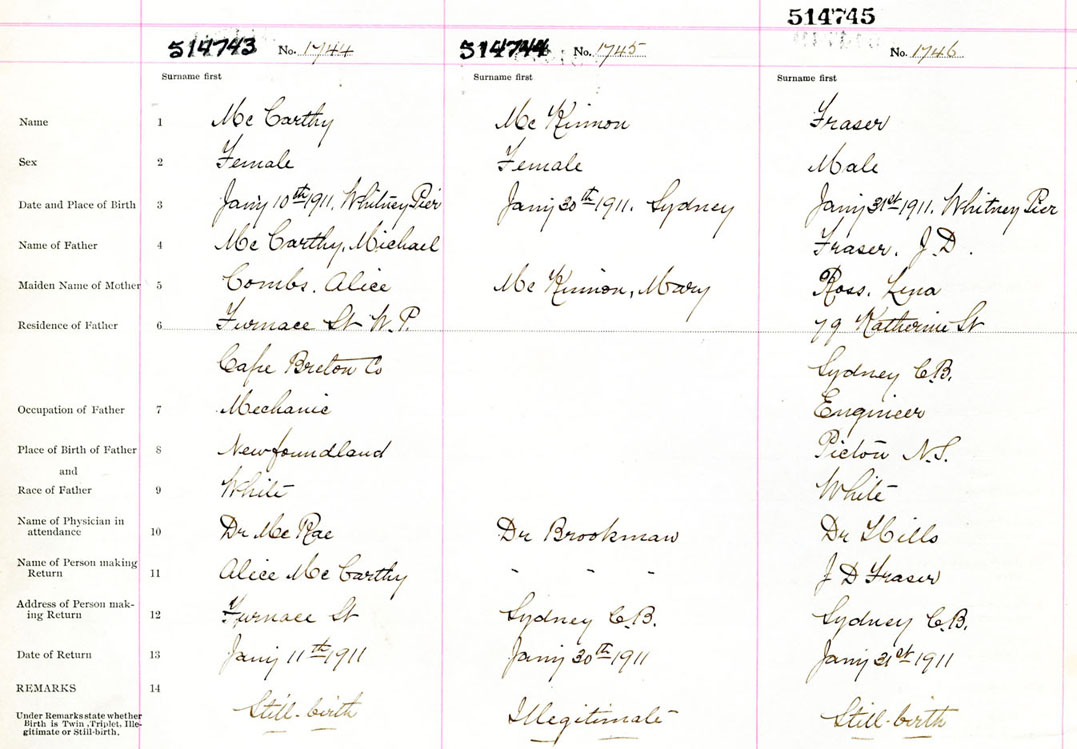 514745
514743 No. 1744 514744 No. 1745 No. 1746
Surname first Surname first Surname first
Name 1 Mc Carthy Mc Kinnon Fraser
Sex 2 Female Female Male
Date and Place of Birth 3 Jany 10th 1911. Whitney Pier Jany 30th 1911. Sydney Jany 31st 1911. Whitney Pier
Name of Father 4 Mc Carthy, Michael Fraser, J. D.
Maiden Name of Mother 5 Combs. Alice Mc Kinnon, Mary Ross, Lena
Residence of Father 6 Furnace St W. P. 79 Katherine St
Cape Breton Co Sydney C.B.
Occupation of Father 7 Mechanic Engineer
Place of Birth of Father 8 Newfoundland Pictou N.S.
and
Race of Father 9 White White
Name of Physician in
attendance 10 Dr Mc Rae Dr Brookman Dr Hills
Name of Person making
Return 11 Alice Mc Carthy " " " J D Fraser
Address of Person mak-
ing Return 12 Furnace St Sydney C.B. Sydney C.B.
Date of Return 13 Jany 11th 1911 Jany 30th 1911 Jany 31st 1911
REMARKS 14
Under Remarks state whether
Birth is Twin, Triplet, Ille-
gitimate or Still-birth.
Still-birth Illegitimate Still-birth